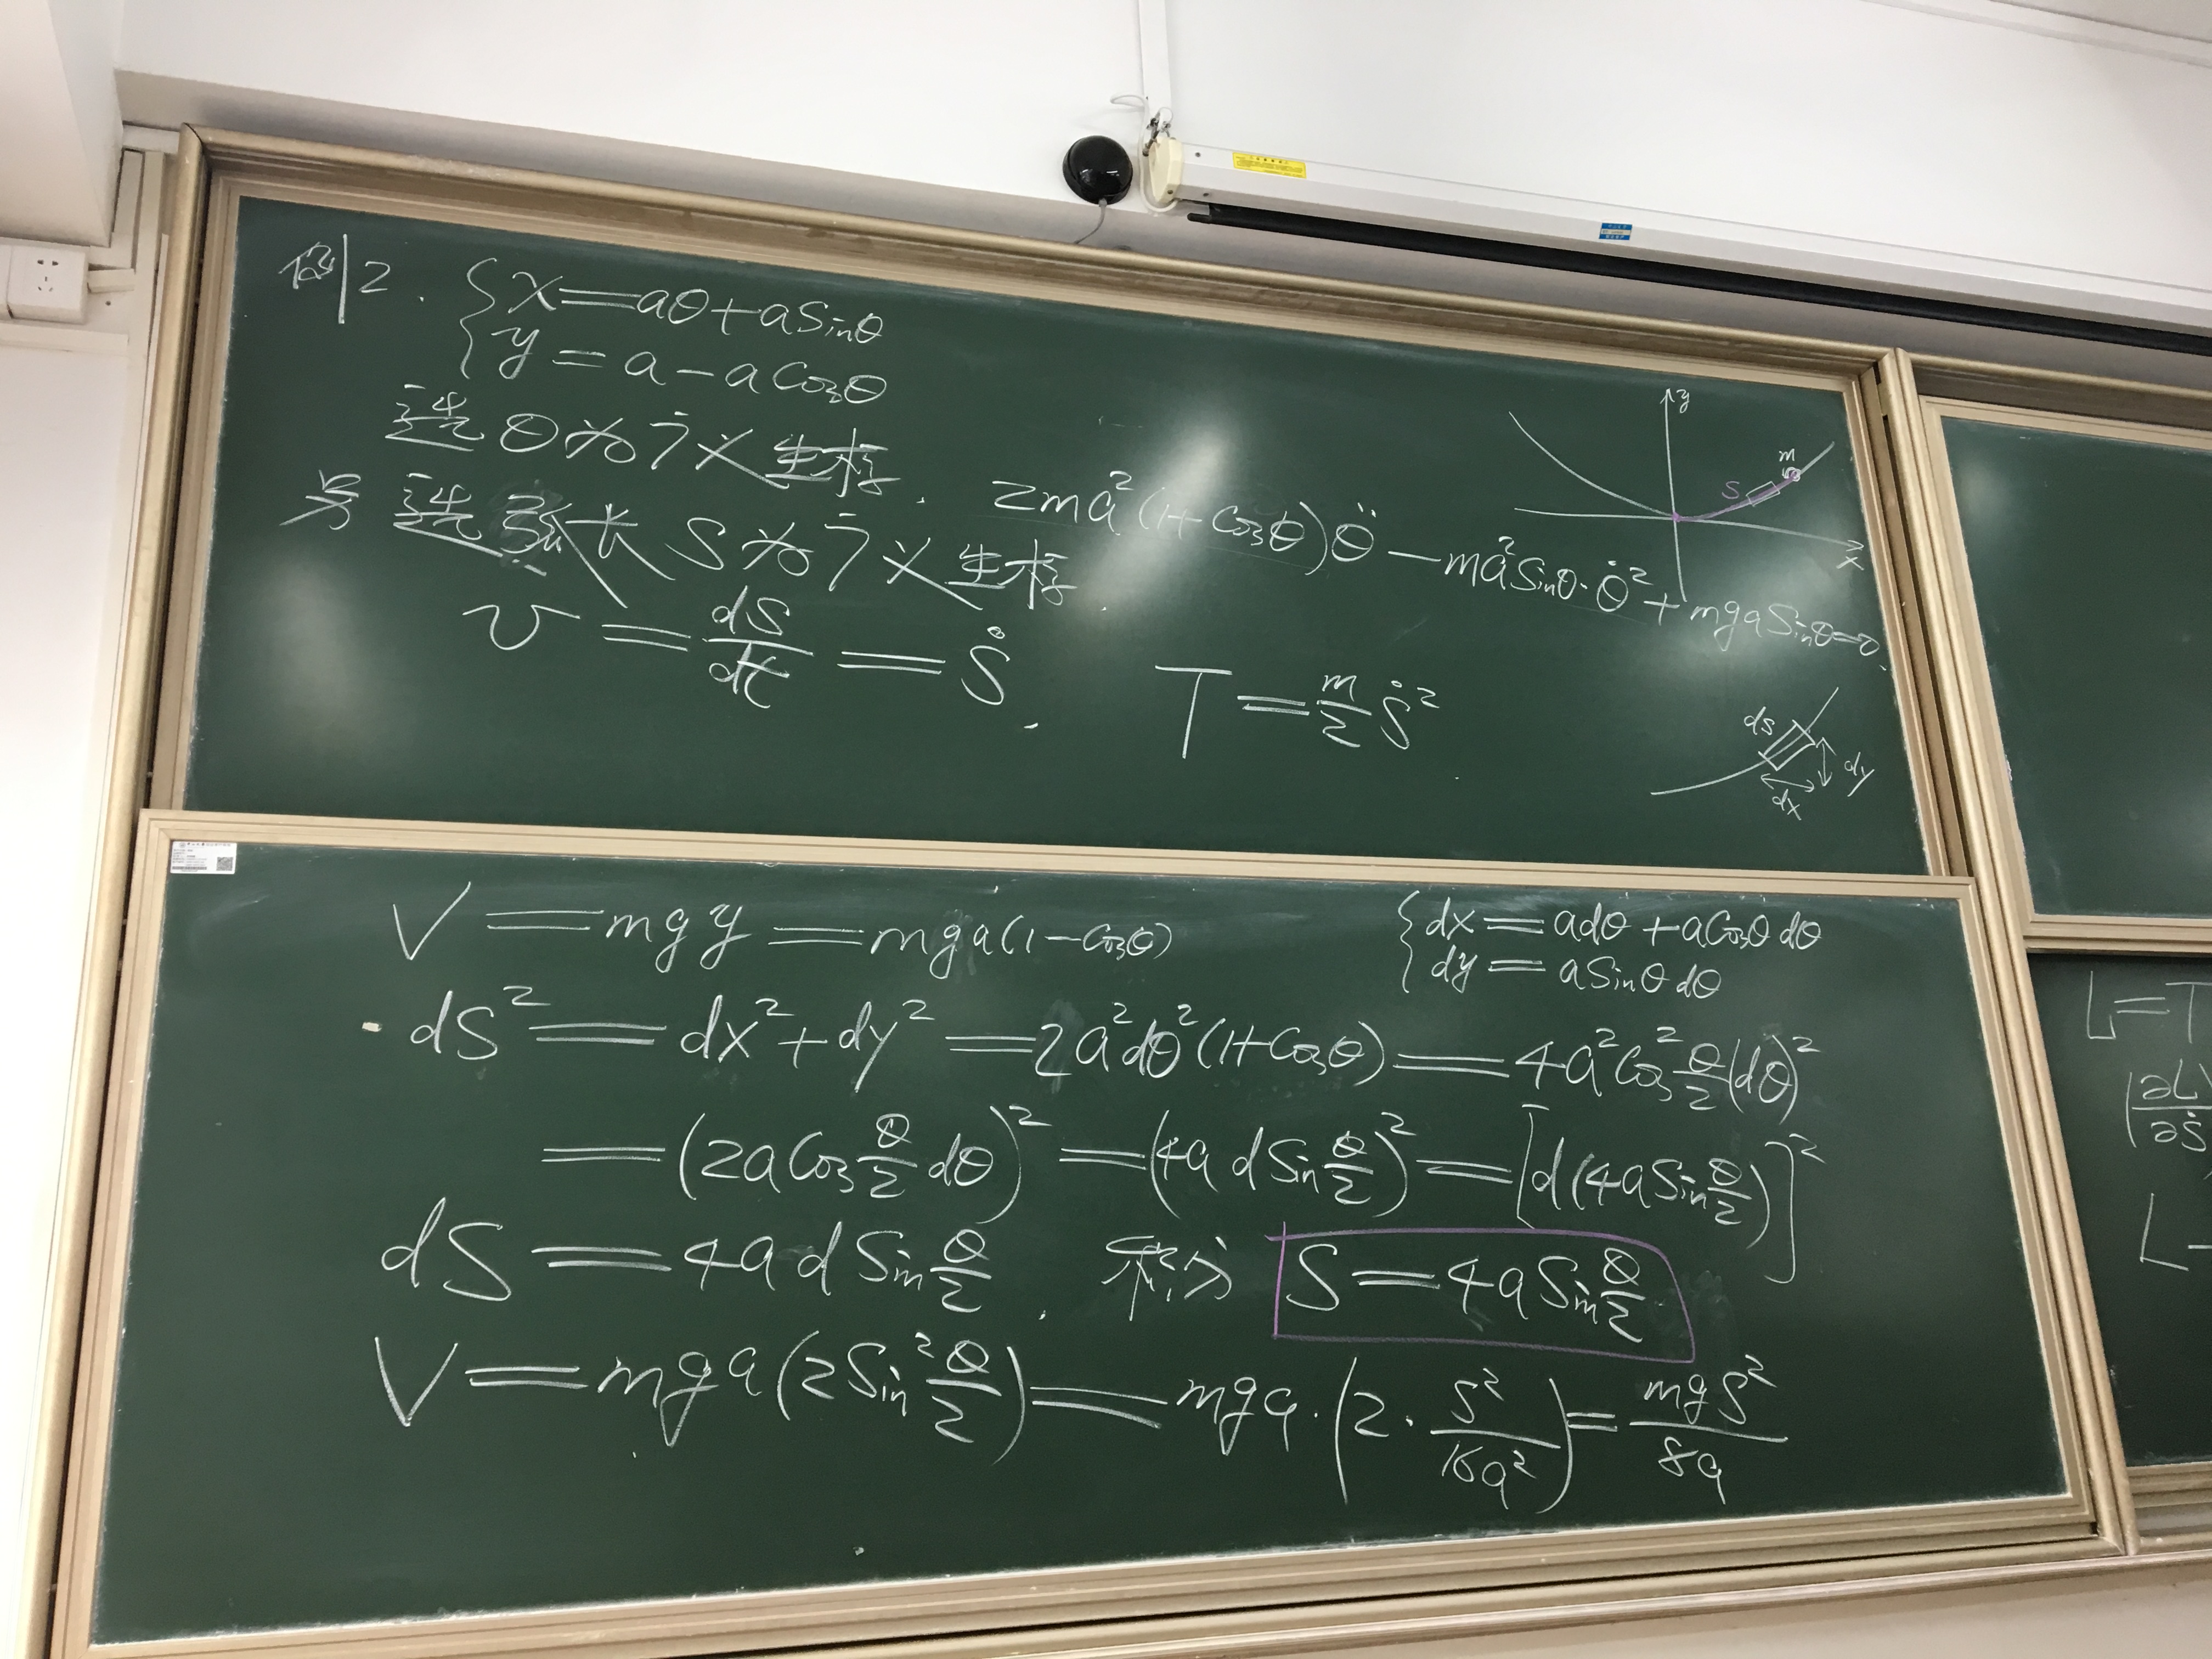 例2. { x = aθ + a Sinθ
y = a − a Cosθ
选 θ 为广义坐标.
2ma²(1+Cosθ)θ̈ − ma²Sinθ·θ̇² + mga Sinθ = 0.
另选弧长 S 为广义坐标.
v = dS/dt = Ṡ. T = m/2 Ṡ²
y
m
S
x
ds
dy
dx
V = mgy = mga(1 − Cosθ)
{ dx = adθ + aCosθ dθ
dy = aSinθ dθ
dS² = dx² + dy² = 2a²dθ²(1+Cosθ) = 4a²Cos² θ/2 (dθ)²
= (2a Cos θ/2 dθ)² = (4a d Sin θ/2)² = [d(4a Sin θ/2)]²
dS = 4a d Sin θ/2. 积分 S = 4a Sin θ/2
V = mga(2Sin² θ/2) = mga·(2· S²/16a²) = mgS²/8a
L = T
∂L/∂Ṡ
L